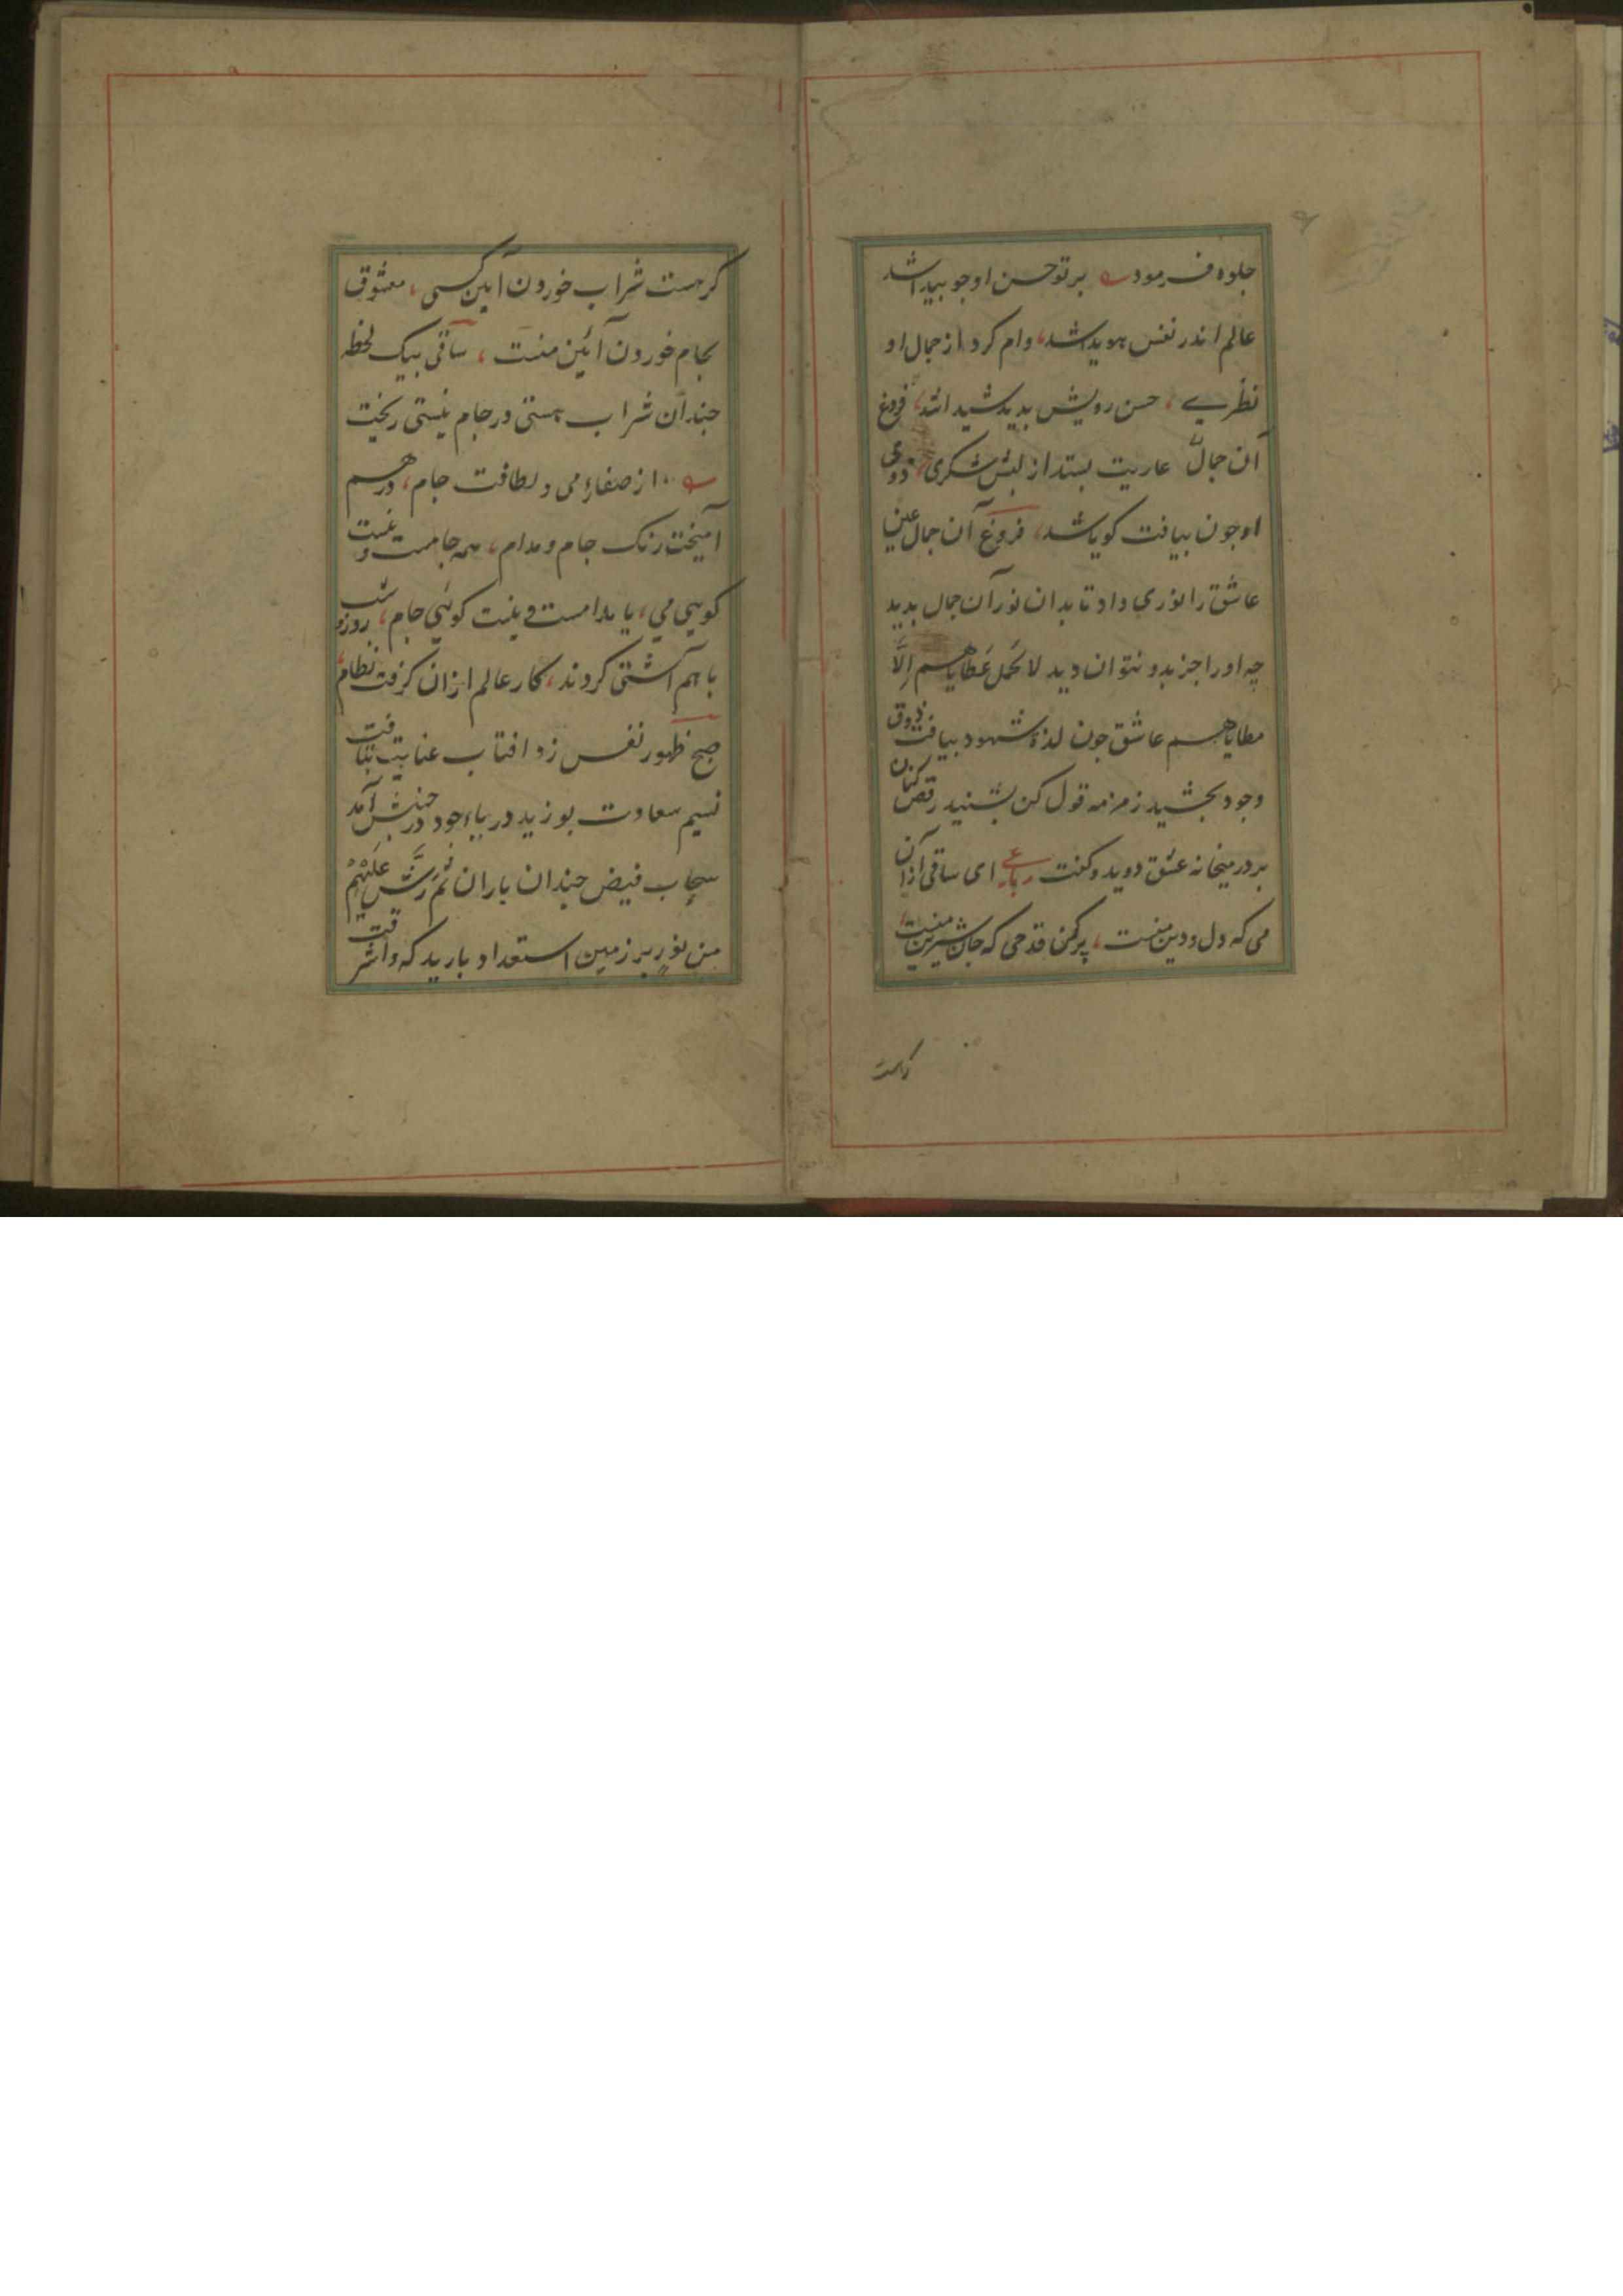 جلوه فرمود پرتو حسن او جو پیدا شد
عالم اندر نفس هویدا شد، وام کرد از جمال او
نظرے، حسن رویش بدید شیدا شد، فروغ
آن جمال عاریت بستد از لبش شکری، ذوق
او جون بیافت کویا شد، فروغ آن جمال عین
عاشق را نوری داد تا بدان نور آن جمال بدید
چه او را جز بدو نتوان دید لا یحمل عَطایاهم اِلَّا
مطایاهم عاشق جون لذة شهود بیافت ذوق
وجود بجشید زمزمه قول کن بشنید رقص کنان
بر در میخانه عشق دوید و کفت رباعی ای ساقی از آن
می که دل و دین منست، پر کن قدحی که جان شیرین منست،
کرهست
کرهست شراب خوردن آیین کسی، معشوق
بجام خوردن آئین منست، ساقی بیک لحظه
جندان شراب هستی در جام نیستی ریخت
از صفاءِ می و لطافت جام، در هم
آمیخت رنک جام و مدام، همه جامست و نیست
کویی می، یا مدامست و نیست کوئی جام، روز و شب
با هم آشتی کردند، کار عالم ازان کرفت نظام،
صبح ظهور نفس زد افتاب عنایت بتافت
نسیم سعادت بوزید دریاءِ جود در جنبش آمد
سحاب فیض جندان باران ثم رَشَّ عَلَیْهِمْ
من نورِه بر زمین استعداد بارید که واشرقت